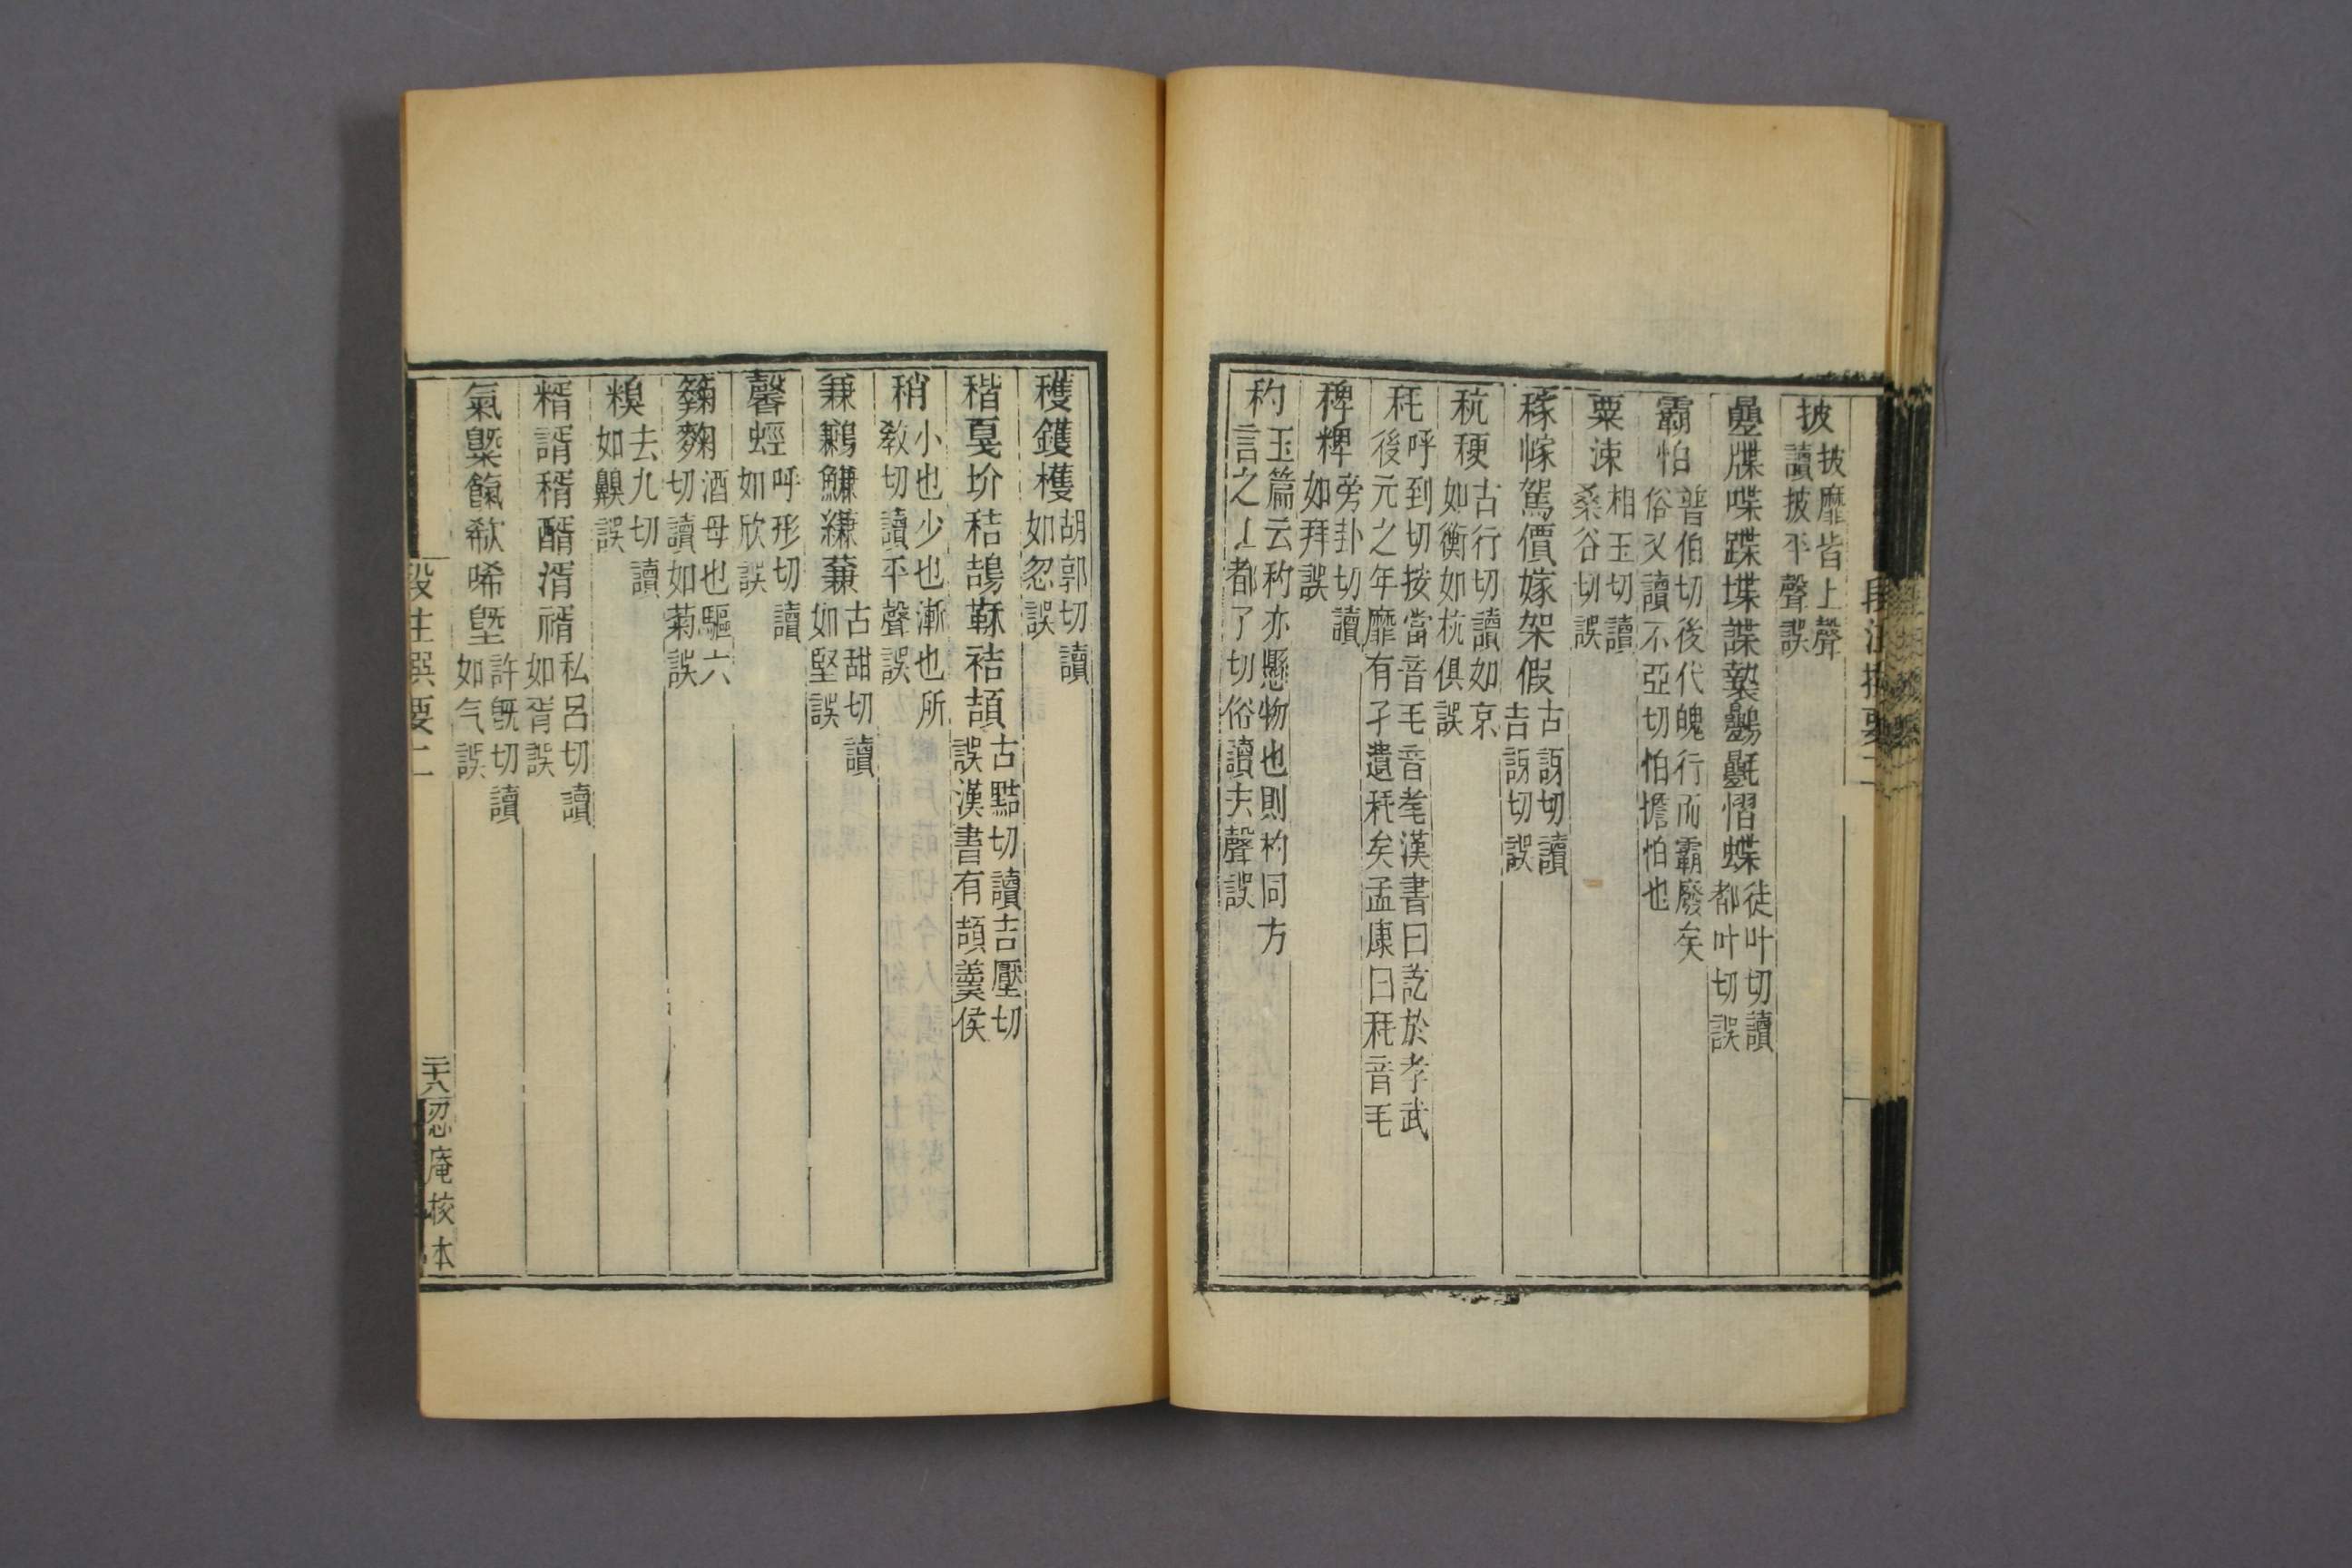 披 披靡皆上聲讀披平聲誤
疊牒喋蹀堞諜褺鷊氎慴蝶 徒叶切讀都叶切誤
霸怕 普伯切後代魄行而霸廢矣俗又讀不亞切怕憺怕也
粟涑 相玉切讀桑谷切誤
稼幏駕價嫁架假 古訝切讀吉訝切誤
秔稉 古行切讀如京如衡如杭俱誤
秏 呼到切按當音毛音耄漢書曰訖於孝武後元之年靡有孑遺秏矣孟康曰秏音毛
稗粺 旁卦切讀如拜誤
秒 玉篇云秒亦懸物也則杓同方言之上都了切俗讀夫聲誤
段注撰要二
穫鑊檴 胡郭切讀如忽誤
稭戛圿秸鴶䓤袺頡 古黠切讀吉壓切誤漢書有頡羹侯
稍 小也少也漸也所敎切讀平聲誤
兼鶼鰜縑蒹 古甜切讀如堅誤
馨蛵 呼形切讀如欣誤
䉤麴 酒母也驅六切讀如菊誤
糗 去九切讀如齅誤
糈諝稰醑湑䋡 私呂切讀如胥誤
氣槩餼欷唏塈 許旣切讀如气誤
段注撰要二
二十八
忍庵校本